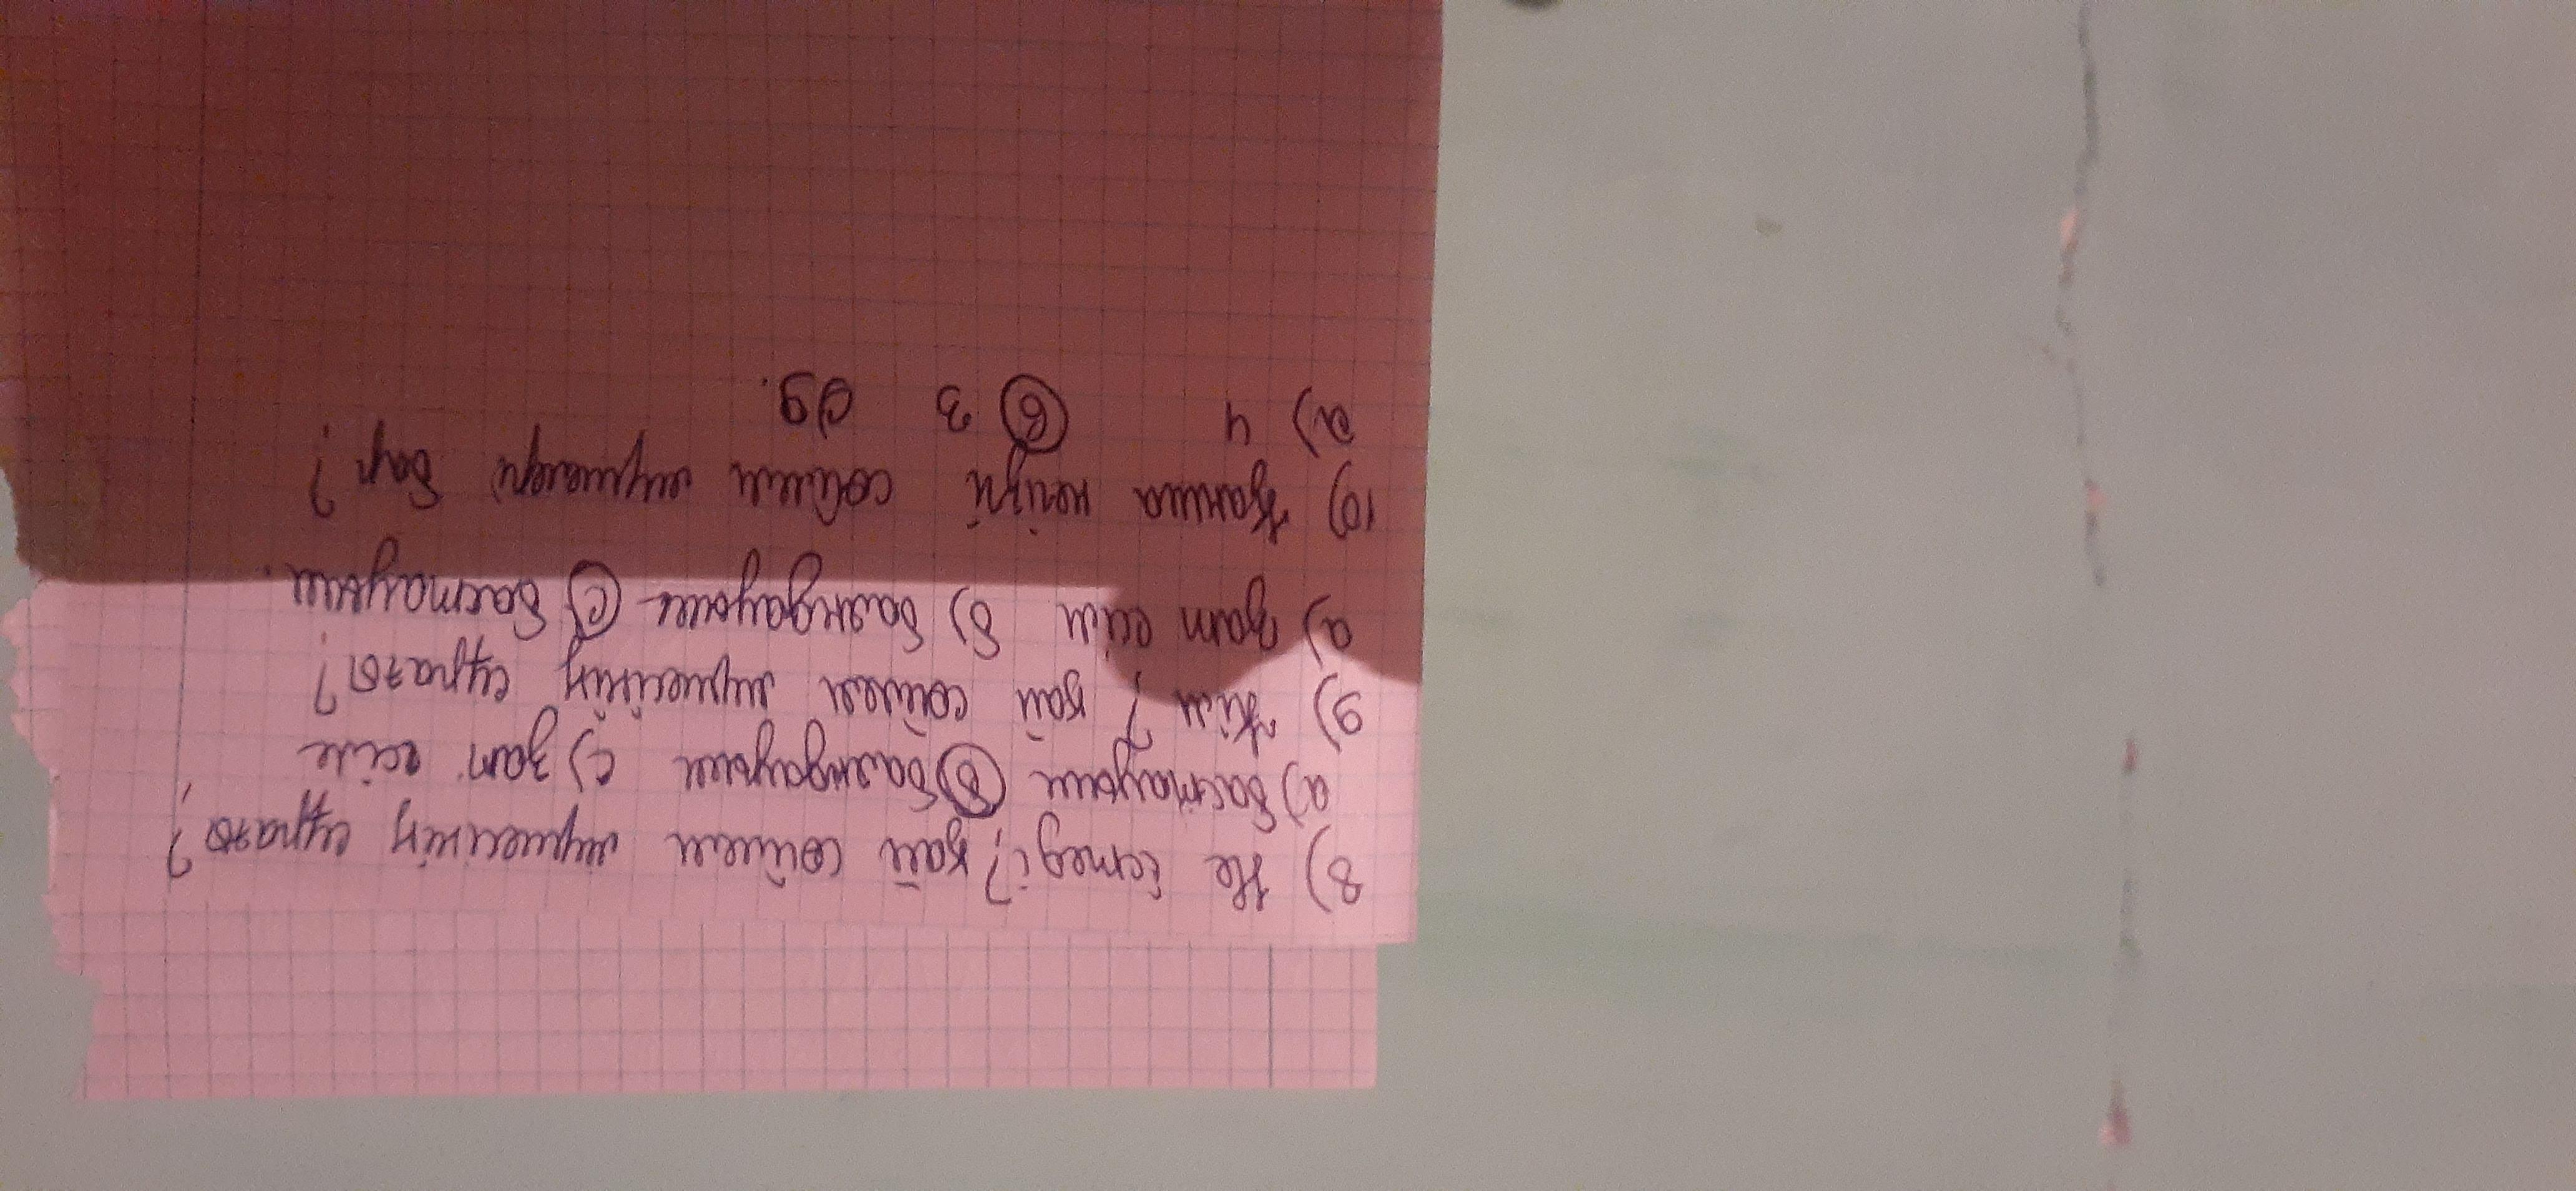 8) Не істеді? қай сөйлем мүшесінің сұрағы?
а) бастауыш в) баяндауыш с) зат есім
9) Кім? қай сөйлем мүшесінің сұрағы?
а) зат есім в) баяндауыш с) бастауыш.
10) Қанша негізгі сөйлем мүшелері бар?
а) 4 в) 3 с) 5.